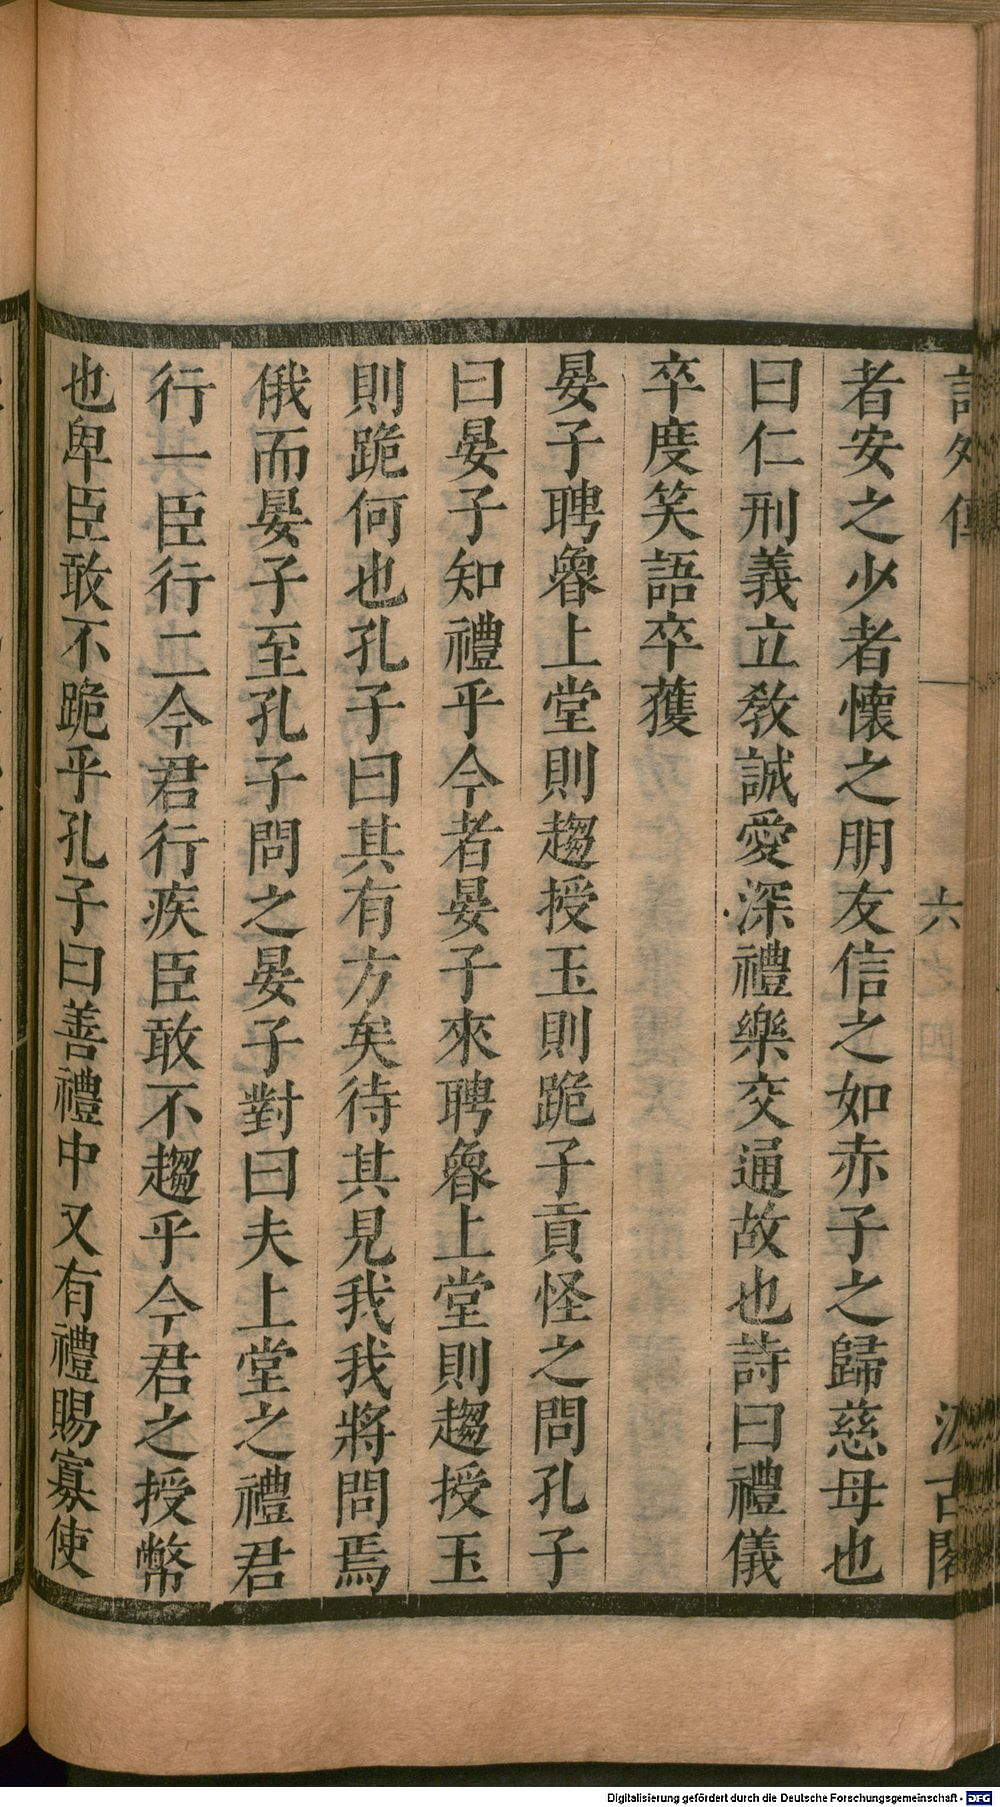 詩外傳 六 汲古閣
者安之少者懷之朋友信之如赤子之歸慈母也
曰仁刑義立敎誠愛深禮樂交通故也詩曰禮儀
卒度笑語卒獲
晏子聘魯上堂則趨授玉則跪子貢怪之問孔子
曰晏子知禮乎今者晏子來聘魯上堂則趨授玉
則跪何也孔子曰其有方矣待其見我我將問焉
俄而晏子至孔子問之晏子對曰夫上堂之禮君
行一臣行二今君行疾臣敢不趨乎今君之授幣
也卑臣敢不跪乎孔子曰善禮中又有禮賜寡使
Digitalisierung gefördert durch die Deutsche Forschungsgemeinschaft - DFG